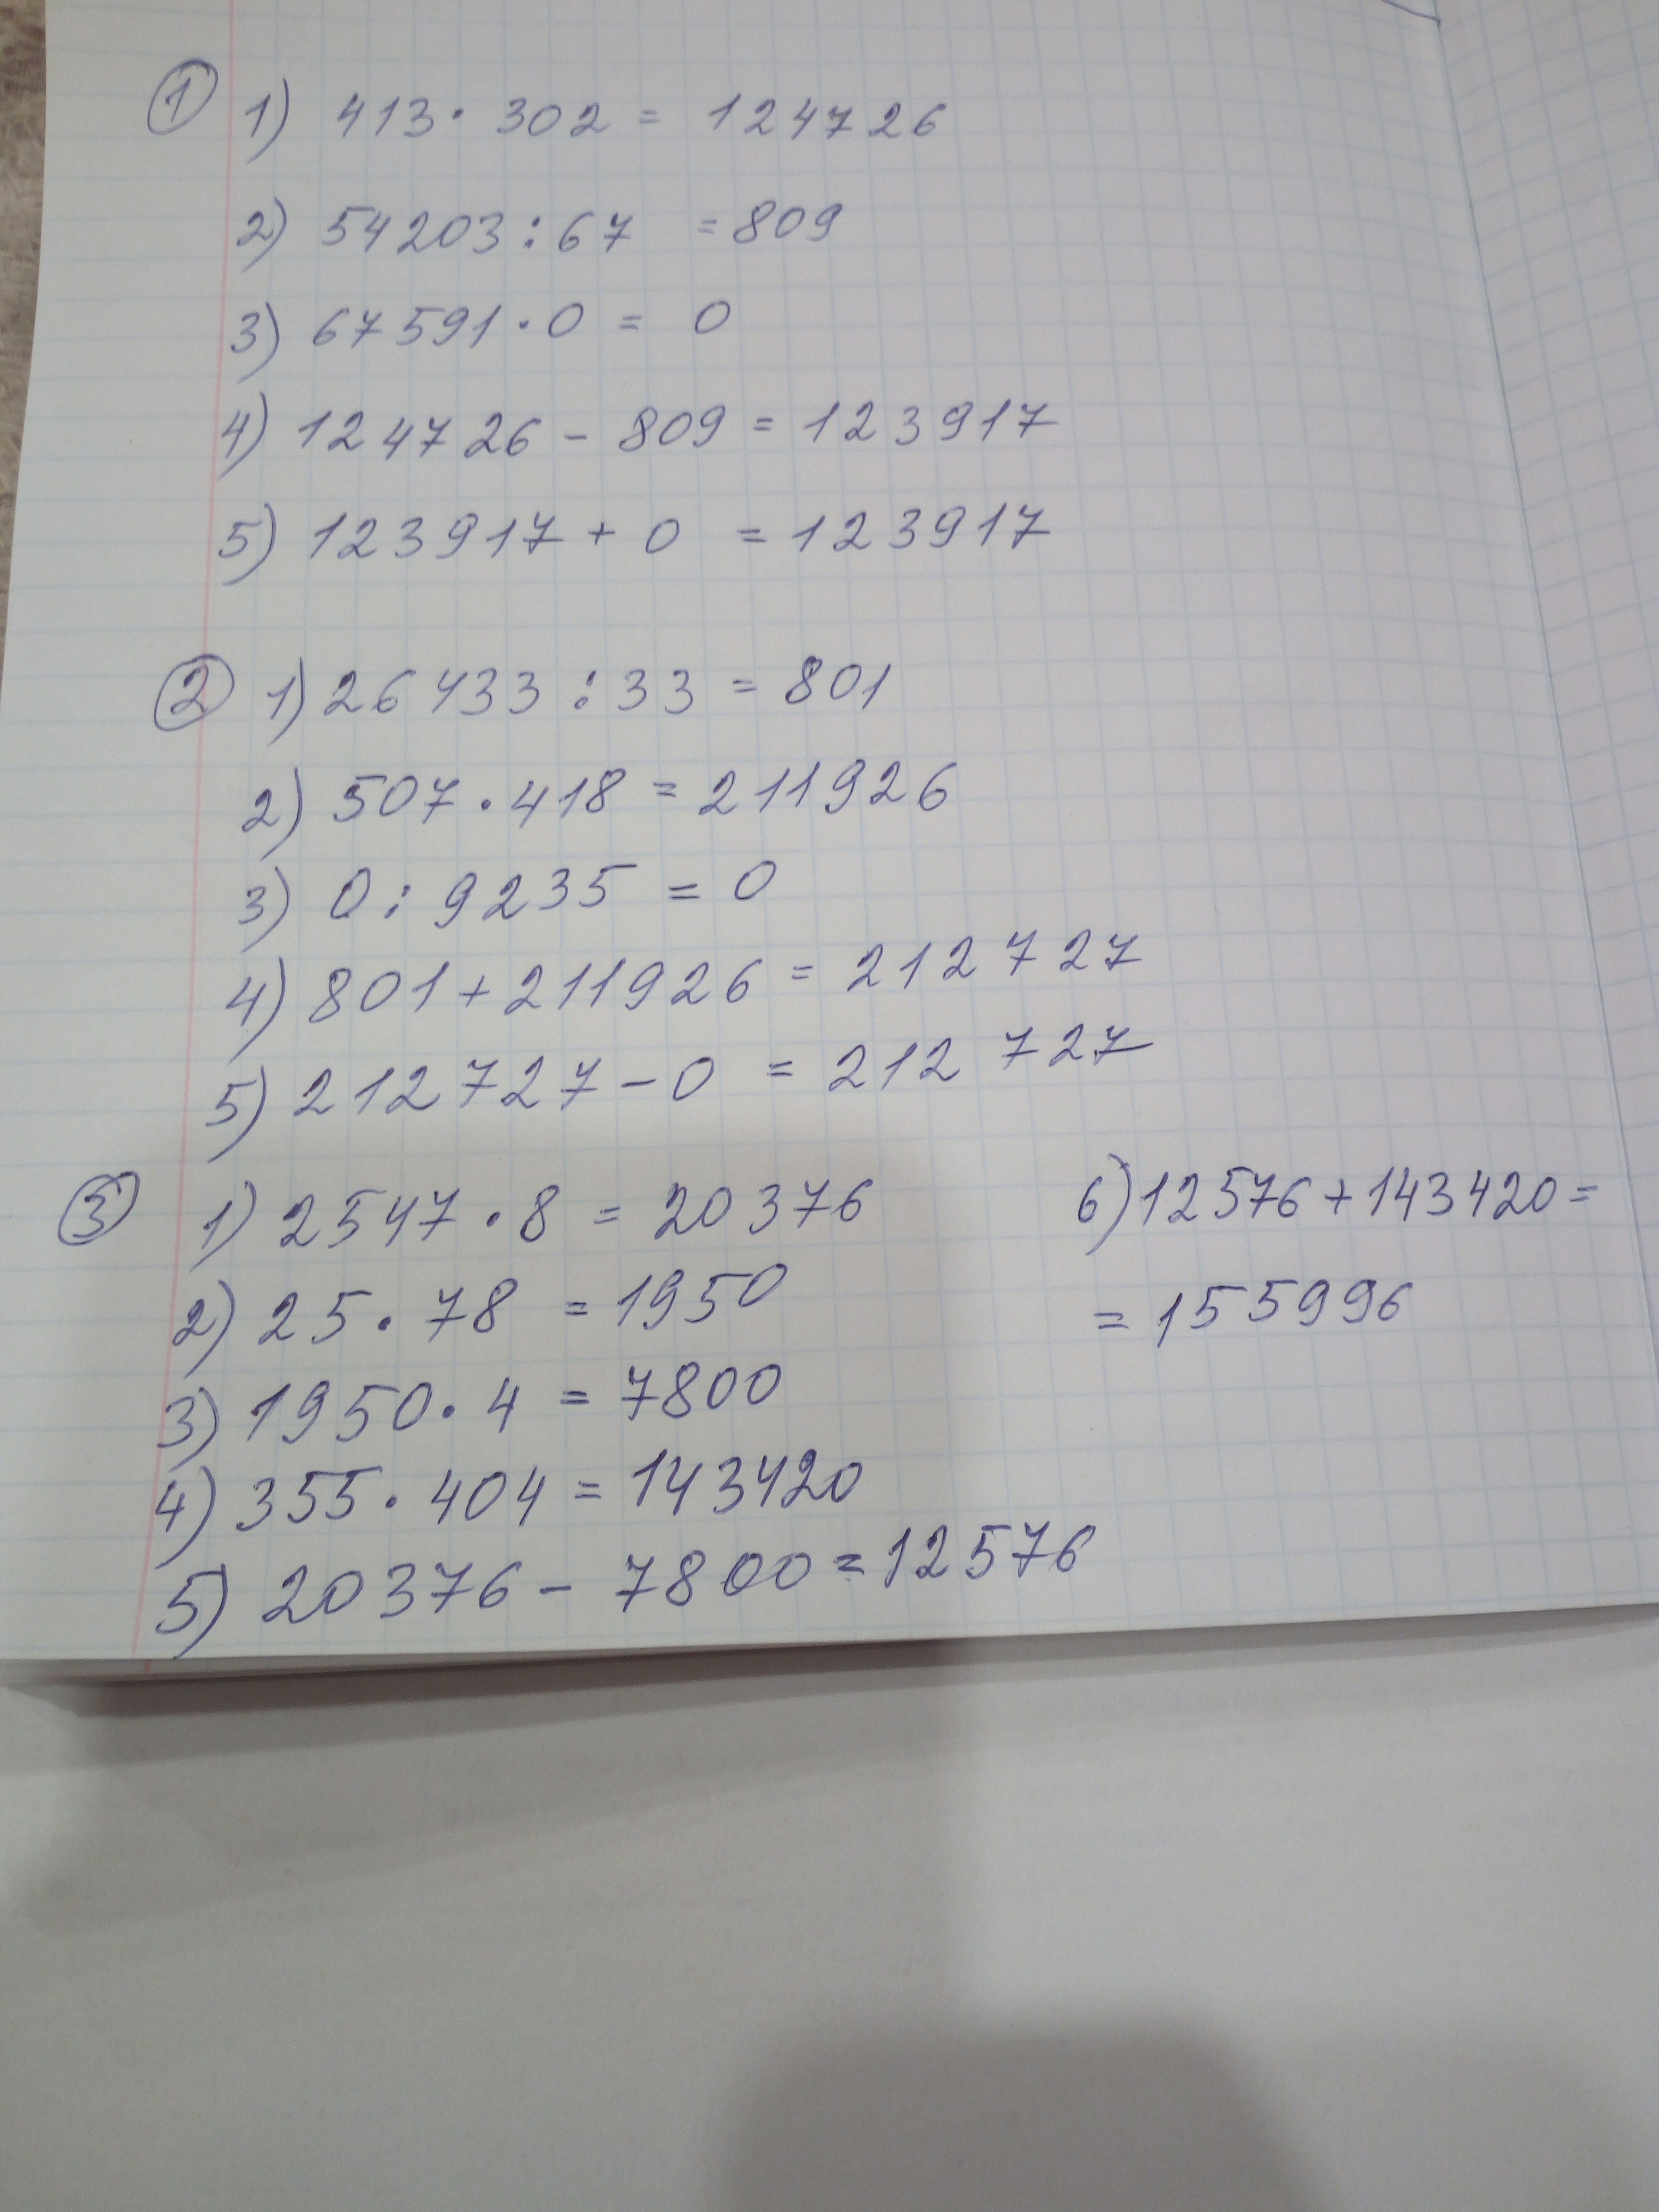 ① 1) 413 · 302 = 124726
2) 54203 : 67 = 809
3) 67591 · 0 = 0
4) 124726 - 809 = 123917
5) 123917 + 0 = 123917
② 1) 26433 : 33 = 801
2) 507 · 418 = 211926
3) 0 : 9235 = 0
4) 801 + 211926 = 212727
5) 212727 - 0 = 212727
③ 1) 2547 · 8 = 20376
2) 25 · 78 = 1950
3) 1950 · 4 = 7800
4) 355 · 404 = 143420
5) 20376 - 7800 = 12576
6) 12576 + 143420 =
= 155996